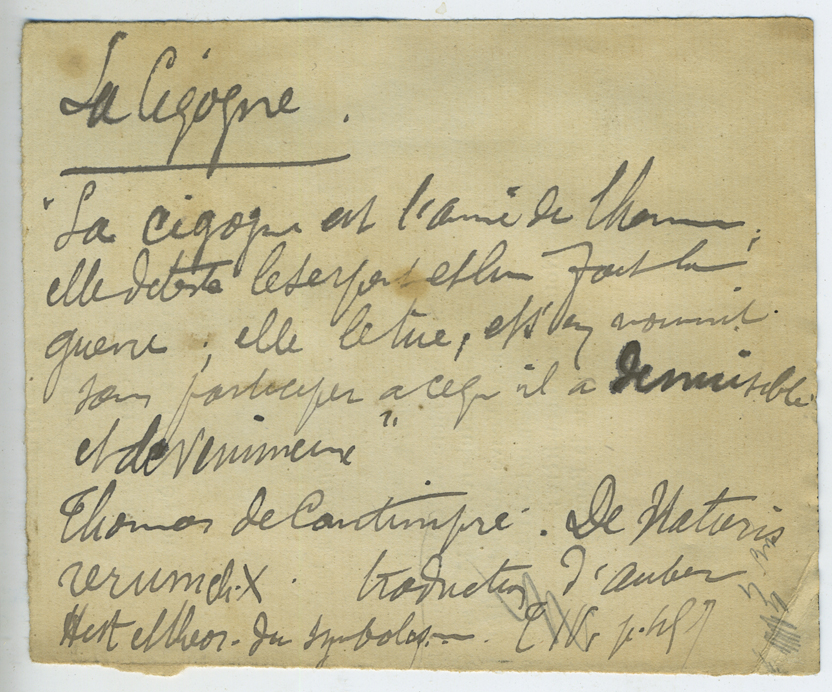 La Cigogne.
"La cigogne est l'amie de l'homme,
elle déteste le serpent et lui fait la
guerre; elle le tue, et s'en nourrit
sans participer a ce qu'il a de nuisible
et de venimeux"
Thomas de Cantimpré. De Naturis
rerum ch. X. traduction d'auber
Hist et theor. du symbolisme. T III, p.